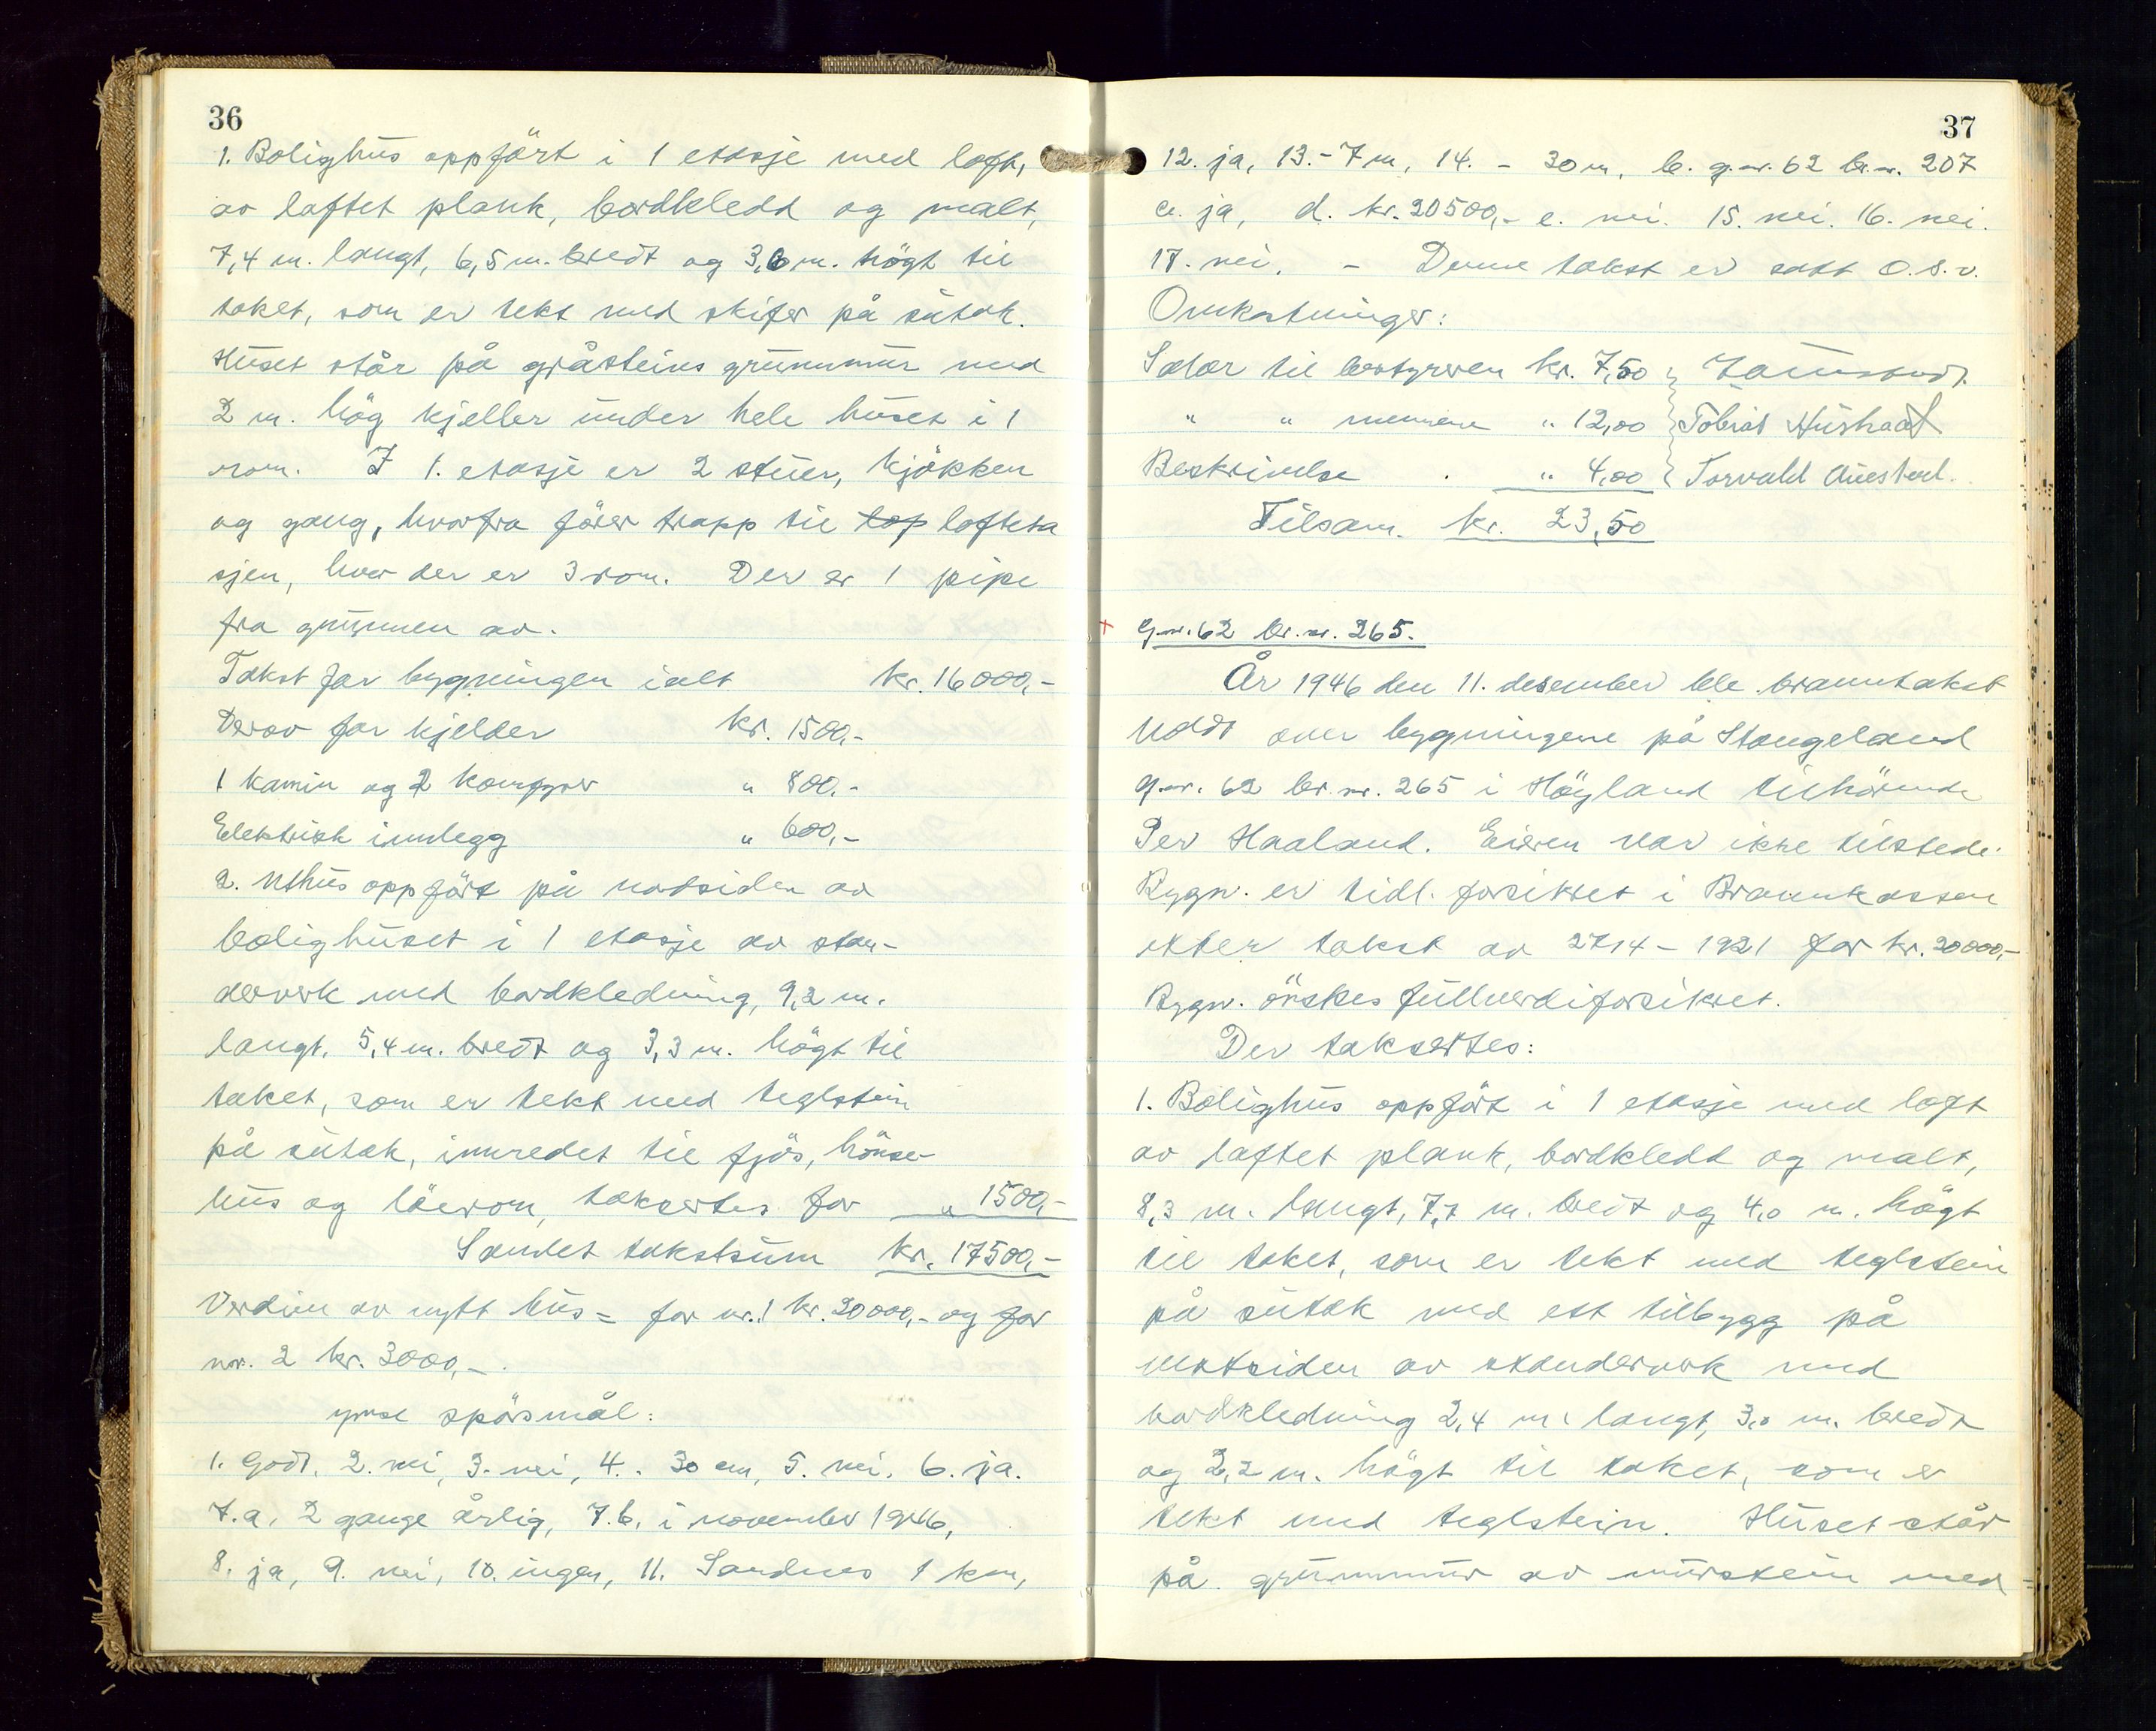 36
1. Bolighus oppfört i 1 etasje med loft,
av laftet plank, bordkledd og malt,
7,4 m. langt, 6,5 m. bredt og 3,6 m. högt til
taket, som er tekt med skifer på sutak.
Huset står på gråsteins grunnmur med
2 m. hög kjeller under hele huset i 1
rom. I 1. etasje er 2 stuer, kjökken
og gang, hvorfra förer trapp til lop lofteta
sjen, hvor der er 3 rom. Der er 1 pipe
fra grunnen av.
Takst for bygningen ialt kr. 16000,-
Derav for kjelder kr. 1500,-
1 kamin og 2 komfyrer " 800.-
Elektrisk innlegg " 600,-
2. Uthus oppfört på nordsiden av
bolighuset i 1 etasje av stan-
derverk med bordkledning, 9,2 m.
langt, 5,4 m. bredt og 3,3 m. högt til
taket, som er tekt med teglstein
på sutak, innredet til fjös, hönse-
hus og löerom, taksertes for " 1500,-
Samlet takstsum kr. 17500,-
Verdien av nytt hus = for nr. 1 kr. 20000,- og for
nr. 2 kr. 3000,-.
ymse spörsmål:
1. Godt. 2. nei, 3. nei, 4. - 30 cm, 5. nei, 6. ja.
7.a. 2 gange årlig, 7.b. i november 1946,
8. ja, 9. nei, 10. ingen, 11. Sandnes 1 km,
37
12. ja, 13. - 7 m, 14. - 30 m, b. g.nr. 62 br.nr. 207
c. ja, d. kr. 20500,- e. nei. 15. nei. 16. nei.
17. nei. - Denne takst er satt o.s.v.
Omkostninger:
Salær til bestyreren kr. 7,50
" " mennene " 12,00 Tobias Hushaat
Beskrivelse . " 4,00 Torvald Auestad.
Tilsam. kr. 23,50
+ g.nr. 62 br.nr. 265.
År 1946 den 11. desember ble branntakst
holdt over bygningene på Stangeland
g.nr. 62 br.nr. 265 i Höyland tilhörende
Per Haaland. Eieren var ikke tilstede.
Bygn. er tidl. forsikret i Brannkassen
etter takst av 27/4 - 1921 for kr. 20000,-
Bygn. önskes fullverdiforsikret.
Der taksertes:
1. Bolighus oppfört i 1 etasje med loft
av laftet plank, bordkledd og malt,
8,3 m. langt, 7,7 m. bredt og 4,0 m. högt
til taket, som er tekt med teglstein
på sutak med ett tilbygg på
vestsiden av standerverk med
bordkledning 2,4 m. langt, 3,0 m. bredt
og 2,2 m. högt til taket, som er
tekt med teglstein. Huset står
på grunnmur av murstein med